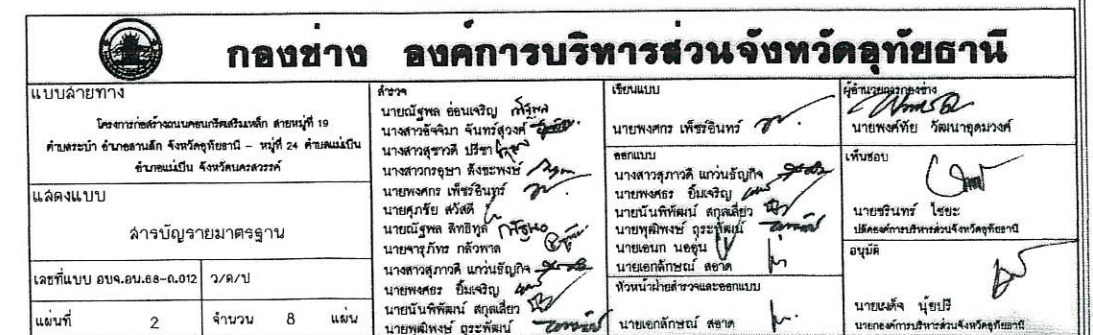 กองช่าง องค์การบริหารส่วนจังหวัดอุทัยธานี
แบบสายทาง
โครงการก่อสร้างถนนคอนกรีตเสริมเหล็ก สายหมู่ที่ 19
ตำบลระบำ อำเภอลานสัก จังหวัดอุทัยธานี - หมู่ที่ 24 ตำบลแม่เปิน
อำเภอแม่เปิน จังหวัดนครสวรรค์
แสดงแบบ
สารบัญรายมาตรฐาน
เลขที่แบบ อบจ.อน.68-ถ.012 ว/ด/ป
แผ่นที่ 2 จำนวน 8 แผ่น
สำรวจ
นายณัฐพล อ่อนเจริญ
นางสาวอัจจิมา จันทร์สุวงศ์
นางสาวสุชาวดี ปรีชา
นางสาวกรอุษา สังขะพงษ์
นายพงศกร เพ็ชรอินทร์
นายศุภชัย สวัสดี
นายณัฐพล สิทธิทูล
นายจารุภัทร กลัวพาล
นางสาวสุภาวดี แกว่นธัญกิจ
นายพงศธร ยิ้มเจริญ
นายนันพิพัฒน์ สกุลเลี่ยว
นายพุฒิพงษ์ ถุระพัฒน์
เขียนแบบ
นายพงศกร เพ็ชรอินทร์
ออกแบบ
นางสาวสุภาวดี แกว่นธัญกิจ
นายพงศธร ยิ้มเจริญ
นายนันพิพัฒน์ สกุลเลี่ยว
นายพุฒิพงษ์ ถุระพัฒน์
นายเอนก นออุ่น
นายเอกลักษณ์ สอาด
หัวหน้าฝ่ายสำรวจและออกแบบ
นายเอกลักษณ์ สอาด
ผู้อำนวยการกองช่าง
นายพงศ์ทัย วัฒนาอุดมวงศ์
เห็นชอบ
นายชรินทร์ ไชยะ
ปลัดองค์การบริหารส่วนจังหวัดอุทัยธานี
อนุมัติ
นายเผด็จ นุ้ยปรี
นายกองค์การบริหารส่วนจังหวัดอุทัยธานี